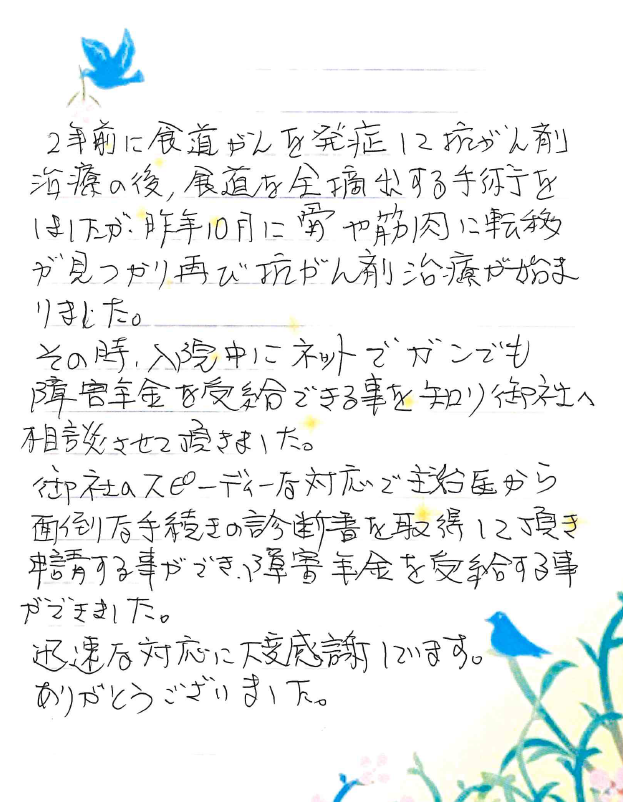 2年前に食道がんを発症して抗がん剤
治療の後,食道を全摘出する手術を
しましたが、昨年10月に骨や筋肉に転移
が見つかり再び抗がん剤治療が始ま
りました。
その時、入院中にネットでガンでも
障害年金を受給できる事を知り御社へ
相談させて頂きました。
御社のスピーディーな対応で主治医から
面倒な手続きの診断書を取得して頂き
申請する事ができ、障害年金を受給する事
ができました。
迅速な対応に大変感謝しています。
ありがとうございました。